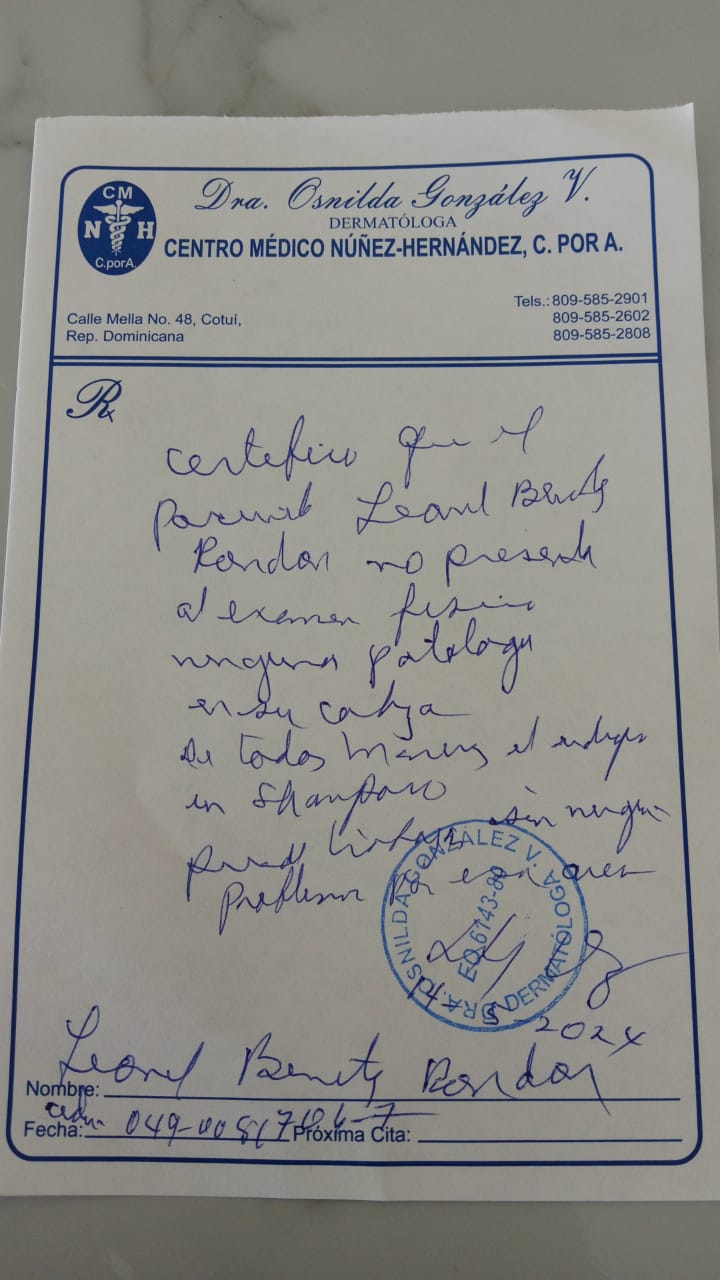 CM
N H
C.porA.
Dra. Osnilda González V.
DERMATÓLOGA
CENTRO MÉDICO NÚÑEZ-HERNÁNDEZ, C. POR A.
Calle Mella No. 48, Cotuí,
Rep. Dominicana
Tels.: 809-585-2901
809-585-2602
809-585-2808
Rx
certifico que el
paciente Leonel Benitez
Rondon no presenta
al examen fisico
ninguna patologia
en su cabeza
De todas maneras el
un Shampoo
puede trabajar sin ningun
problema por esa area
DRA. OSNILDA GONZÁLEZ V.
EQ.6143-89
DERMATÓLOGA
2024
Nombre: Leonel Benitez Rondon
Fecha:
Próxima Cita: